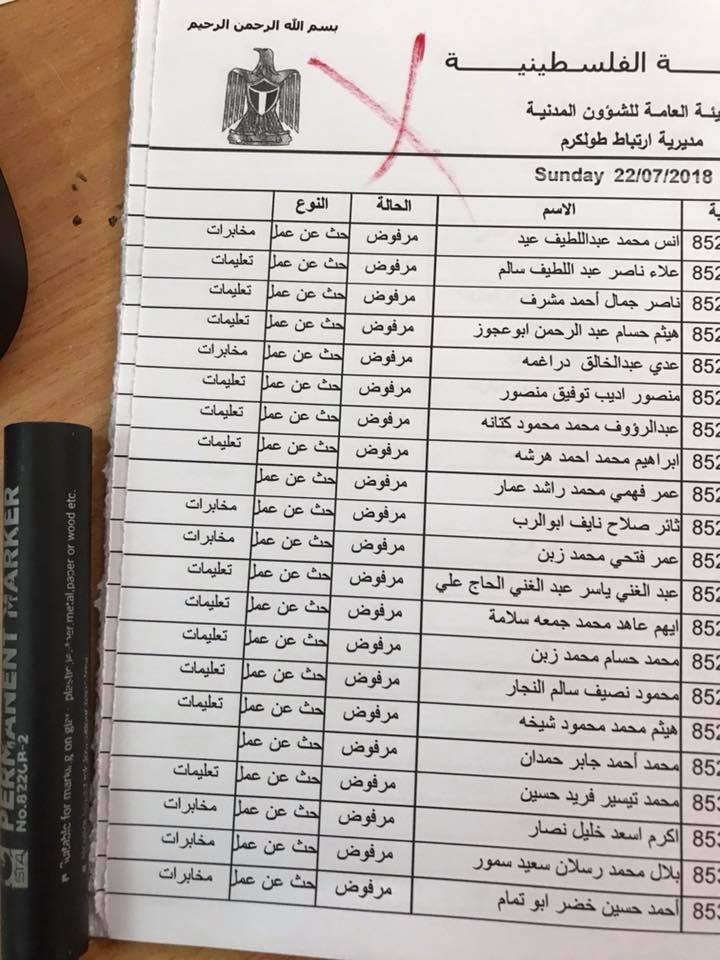 بسم الله الرحمن الرحيم
ـة الفلسـطينيـــة
ـيئـة العامـة للشـؤون المدنية
مديرية ارتباط طولكرم
Sunday 22/07/2018
الاسم الحالة النوع
852 انس محمد عبداللطيف عيد مرفوض حث عن عمل مخابرات
852 علاء ناصر عبد اللطيف سالم مرفوض حث عن عمل تعليمات
852 ناصر جمال أحمد مشرف مرفوض حث عن عمل تعليمات
852 هيثم حسام عبد الرحمن ابوعجوز مرفوض حث عن عمل تعليمات
852 عدي عبدالخالق دراغمه مرفوض حث عن عمل مخابرات
852 منصور اديب توفيق منصور مرفوض حث عن عمل تعليمات
852 عبدالرؤوف محمد محمود كتانه مرفوض حث عن عمل تعليمات
852 ابراهيم محمد احمد هرشه مرفوض حث عن عمل تعليمات
852 عمر فهمي محمد راشد عمار مرفوض حث عن عمل
852 ثائر صلاح نايف ابوالرب مرفوض حث عن عمل مخابرات
852 عمر فتحي محمد زبن مرفوض حث عن عمل مخابرات
852 عبد الغني ياسر عبد الغني الحاج علي مرفوض حث عن عمل تعليمات
852 ايهم عاهد محمد جمعه سلامة مرفوض حث عن عمل تعليمات
852 محمد حسام محمد زبن مرفوض حث عن عمل تعليمات
852 محمود نصيف سالم النجار مرفوض حث عن عمل تعليمات
852 هيثم محمد محمود شيخه مرفوض حث عن عمل تعليمات
852 محمد أحمد جابر حمدان مرفوض حث عن عمل
853 محمد تيسير فريد حسين مرفوض حث عن عمل تعليمات
853 اكرم اسعد خليل نصار مرفوض حث عن عمل مخابرات
853 بلال محمد رسلان سعيد سمور مرفوض حث عن عمل مخابرات
853 أحمد حسين خضر ابو تمام مرفوض حث عن عمل مخابرات
PERMANENT MARKER
No.822CR-2
STA
for marking on metal,paper or wood etc.